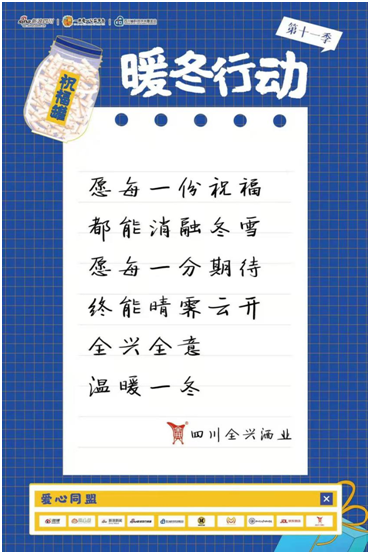 第十一季
暖冬行动
祝福罐
愿每一份祝福
都能消融冬雪
愿每一分期待
终能晴霁云开
全兴全意
温暖一冬
四川全兴酒业
爱心同盟